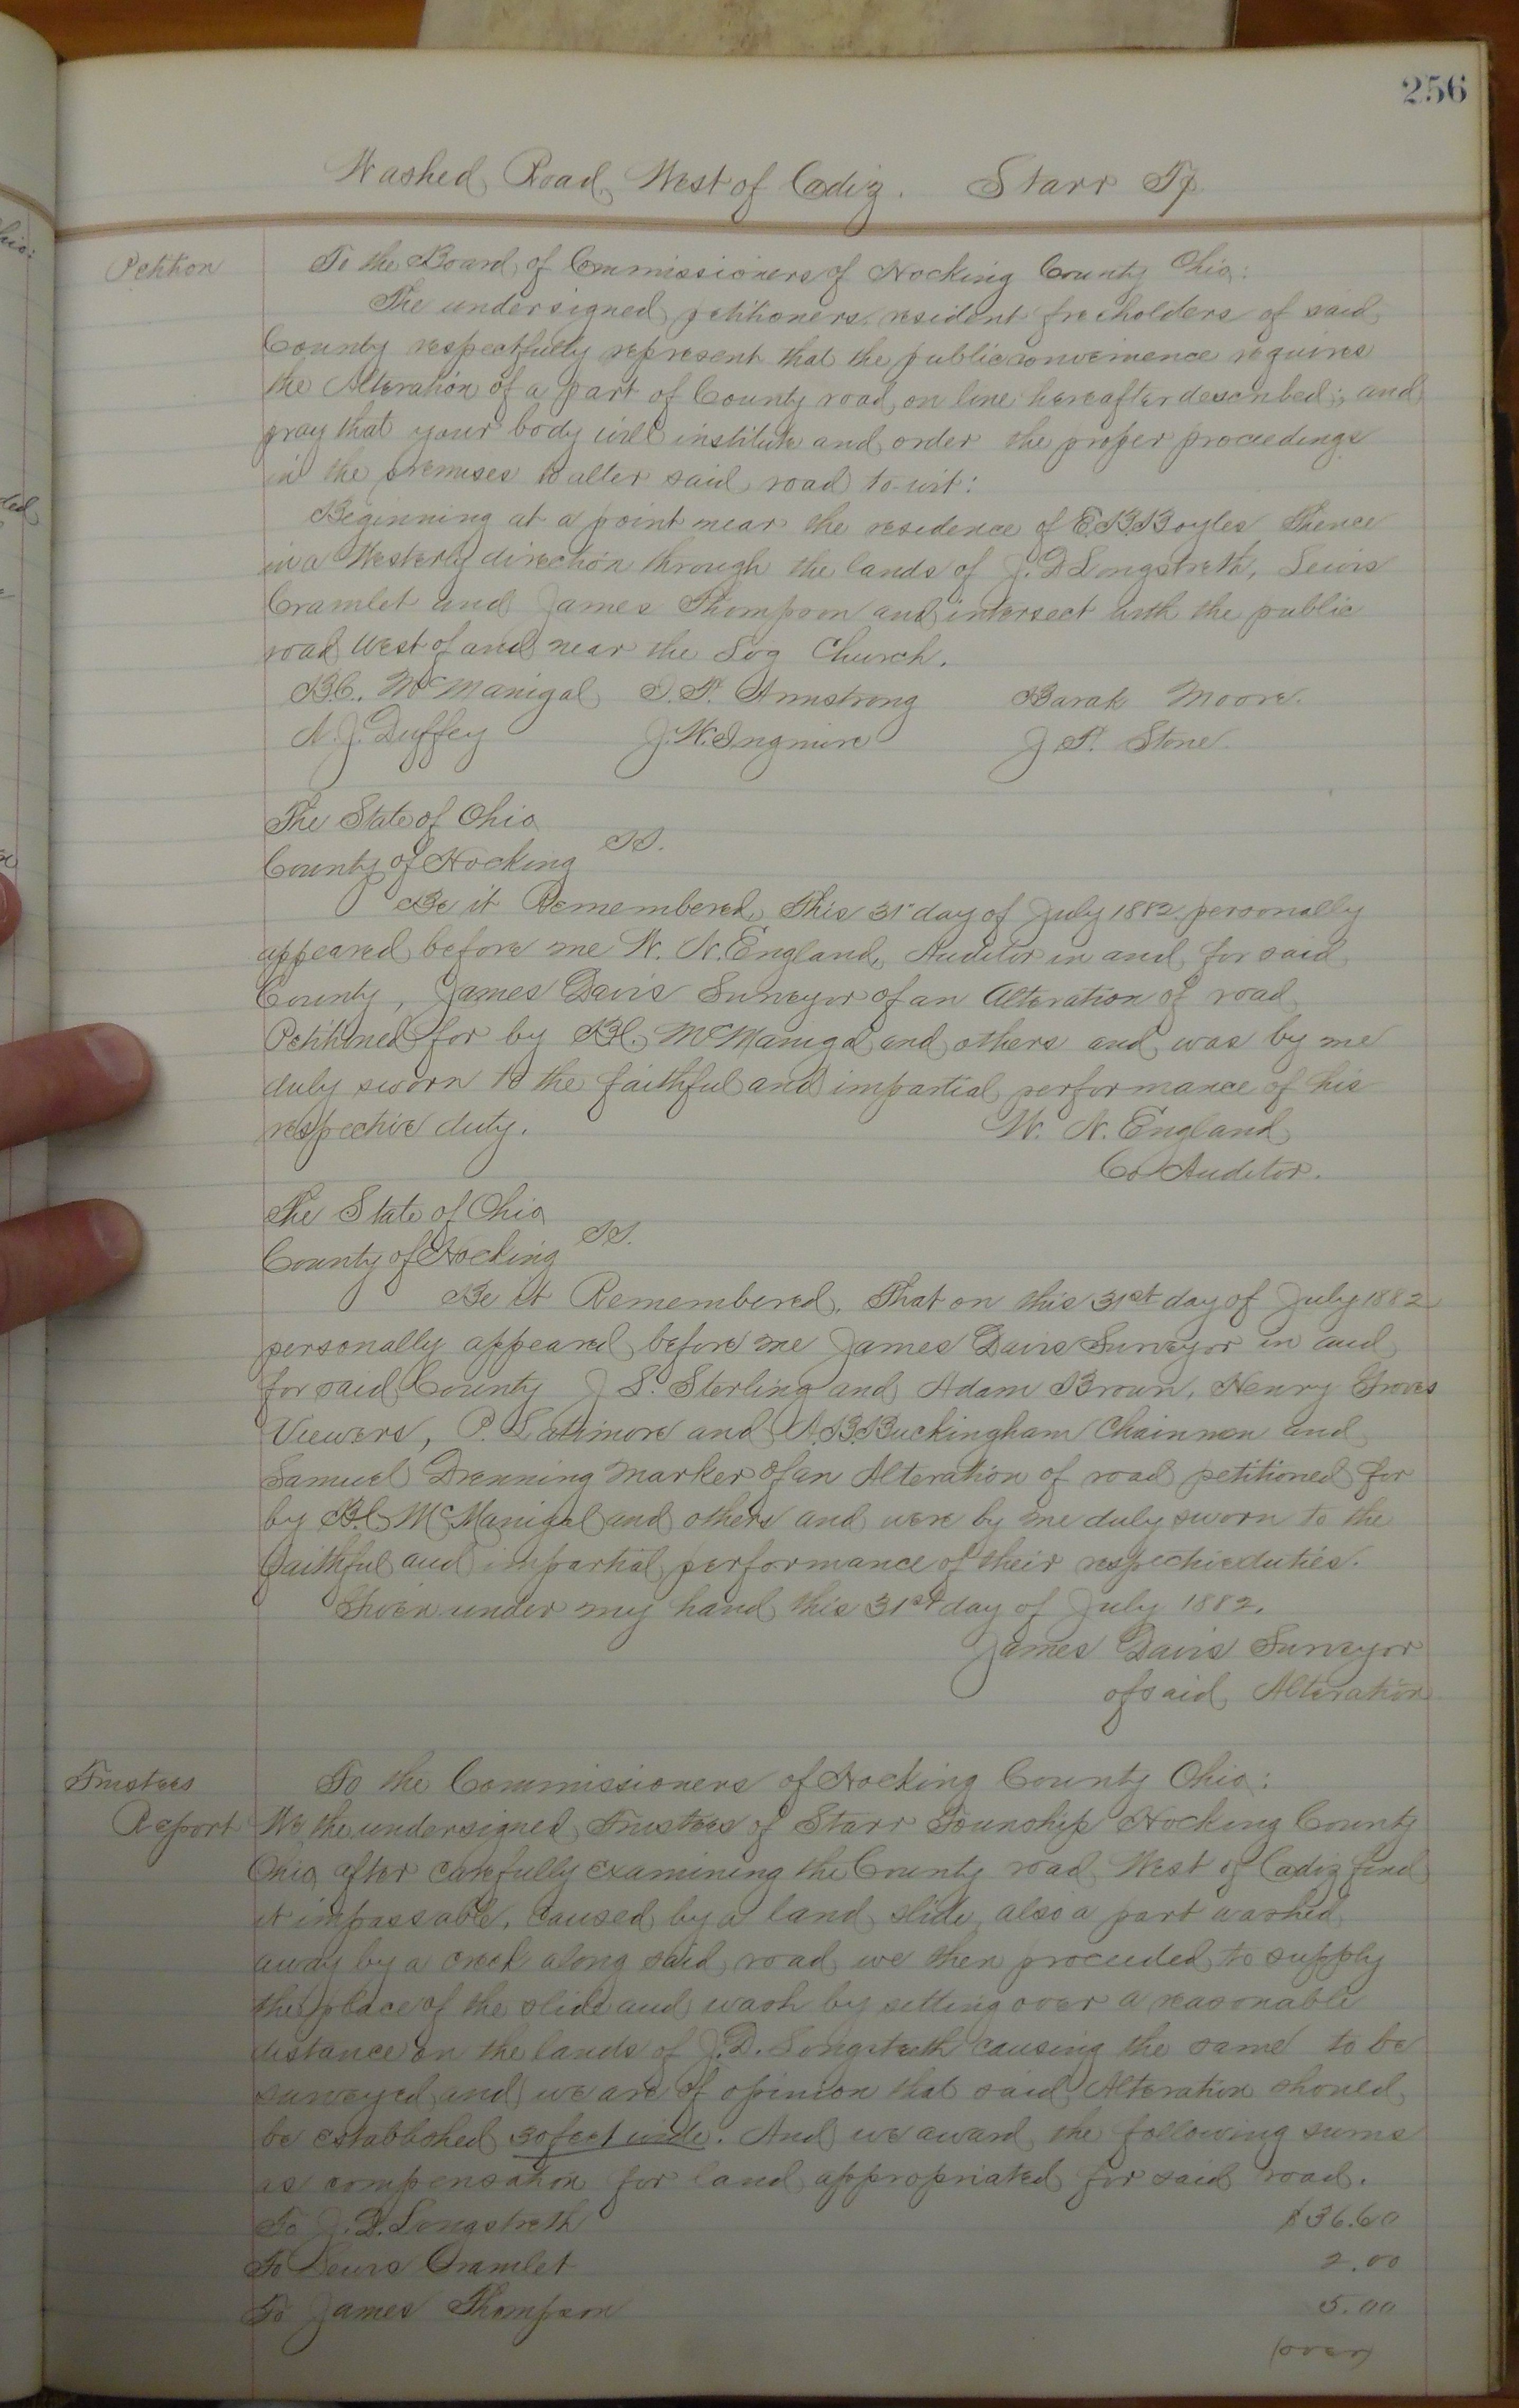 256
Washed Road West of Cadiz. Starr Tp.
Petition
To the Board of Commissioners of Hocking County Ohio:
The undersigned petitioners, resident freeholders of said
County respectfully represent that the public convenience requires
the Alteration of a part of County road, on line hereafter described; and
pray that your body will institute and order the proper proceedings
in the premises to alter said road to-wit:
Beginning at a point near the residence of E.B. Boyles Thence
in a Westerly direction through the lands of J. D Longstreth, Lewis
Cramlet and James Thompson and intersect with the public
road West of and near the Log Church.
B.C. McManigal I. T. Armstrong Barak Moore.
N. J. Duffey J. W. Ingmire J. T. Stone
The State of Ohio
County of Hocking SS.
Be it Remembered, This 31st day of July 1882 personally
appeared before me W. N. England, Auditor in and for said
County, James Davis Surveyor of an Alteration of road
Petitioned for by B.C. McManigal and others and was by me
duly sworn to the faithful and impartial performance of his
respective duty. W. N. England
Co Auditor.
The State of Ohio
County of Hocking SS.
Be it Remembered, That on this 31st day of July 1882
personally appeared before me James Davis Surveyor in and
for said County J S. Sterling and Adam Brown, Henry Groves
Viewers, P. Latimore and A.B. Buckingham Chainmen and
Samuel Drenning Marker of an Alteration of road petitioned for
by B.C. McManigal and others and were by me duly sworn to the
faithful and impartial performance of their respective duties.
Given under my hand this 31st day of July 1882.
James Davis Surveyor
of said Alteration
Trustees
Report
To the Commissioners of Hocking County Ohio:
We the undersigned Trustees of Starr Township Hocking County
Ohio after carefully examining the County road West of Cadiz find
it impassable, caused by a land slide also a part washed
away by a creek along said road we then proceeded to supply
the place of the slide and wash by setting over a reasonable
distance on the lands of J. D. Longstreth causing the same to be
surveyed and we are of opinion that said Alteration should
be established 30 feet wide. And we award the following sums
as compensation for land appropriated for said road.
To J. D. Longstreth $36.60
To Lewis Cramlet 2.00
To James Thompson 5.00
(over)